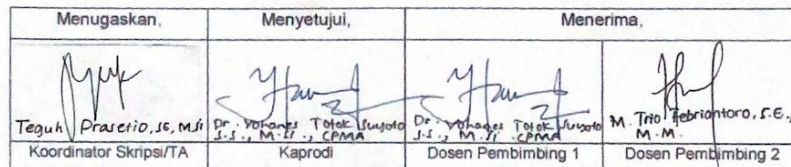 Menugaskan,
Menyetujui,
Menerima,
Teguh Prasetio, SE, M.Si
Dr. Yohanes Totok Suyoto
S.S., M.Si., CPMA
Dr. Yohanes Totok Suyoto
S.S., M.Si., CPMA
M. Trio Febriantoro, S.E.,
M.M.
Koordinator Skripsi/TA
Kaprodi
Dosen Pembimbing 1
Dosen Pembimbing 2